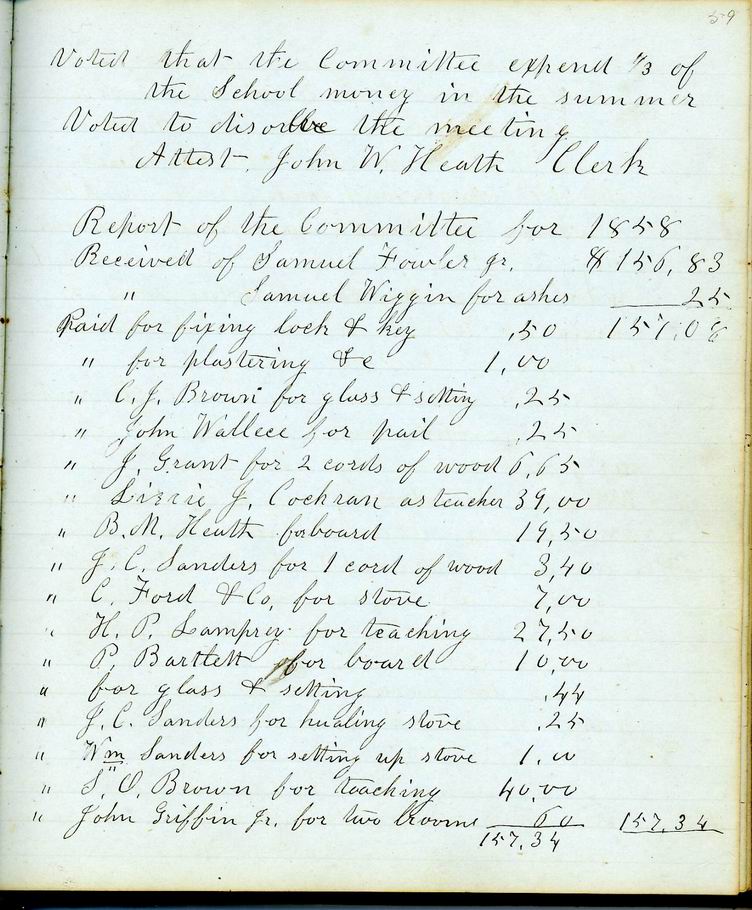 59
Voted that the Committee expend 1/3 of
the School money in the summer
Voted to disolve the meeting
Attest, John W. Heath Clerk
Report of the Committee for 1858
Received of Samuel Fowler Jr. $156,83
" Samuel Wiggin for ashes 25
Paid for fixing lock & key ,50 157,08
" for plastering &c 1,00
" C. J. Brown for glass & setting ,25
" John Wallece for pail ,25
" J. Grant for 2 cords of wood 6,65
" Lizzie J. Cochran as teacher 39,00
" B. M. Heath for board 19,50
" J. C. Sanders for 1 cord of wood 3,40
" C. Ford & Co, for stove 7,00
" H. P. Lamprey for teaching 27,50
" P. Bartlett for board 10,00
" for glass & setting ,44
" J. C. Sanders for hualing stove ,25
" Wm Sanders for setting up stove 1,00
" S. O. Brown for teaching 40,00
" John Griffin Jr. for two brooms 60 157,34
157,34